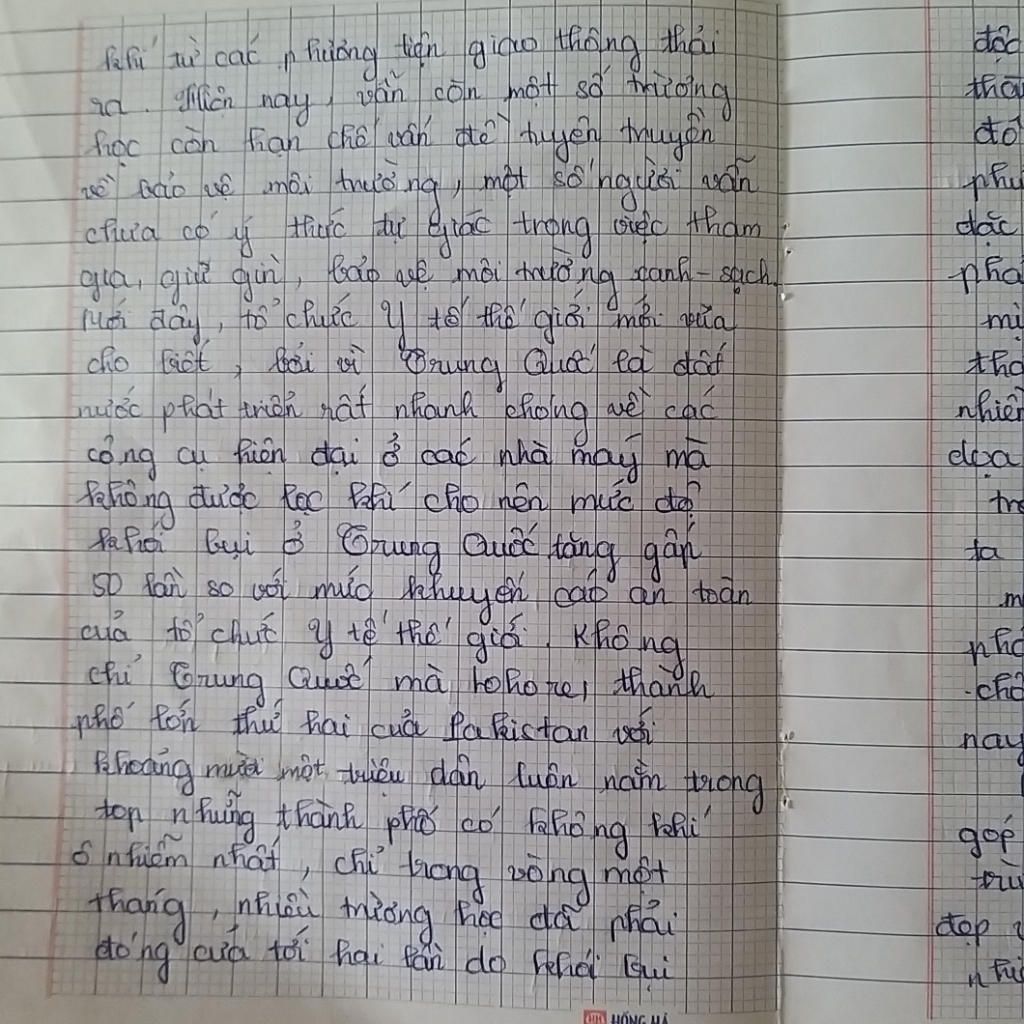 khí từ các phương tiện giao thông thải
ra. Hiện nay, vẫn còn một số trường
học còn hạn chế vấn đề tuyên truyền
về bảo vệ môi trường, một số người vẫn
chưa có ý thức tự giác trong việc tham
gia, giữ gìn, bảo vệ môi trường xanh-sạch.
Mới đây, tổ chức Y tế thế giới mới vừa
cho biết, bởi vì Trung Quốc là đất
nước phát triển rất nhanh chóng về các
công cụ hiện đại ở các nhà máy mà
không được lọc khí cho nên mức độ
khói bụi ở Trung Quốc tăng gấp
50 lần so với mức khuyến cáo an toàn
của tổ chức Y tế thế giới. Không
chỉ Trung Quốc mà, thành
phố lớn thứ hai của Pakistan với
khoảng mười một triệu dân luôn nằm trong
top những thành phố có không khí
ô nhiễm nhất, chỉ trong vòng một
tháng, nhiều trường học đã phải
đóng cửa tới hai lần do khói bụi
HỒNG HÀ
độc
đó
đặc
mị
nhiên
dọa
ta
nay
góp
đẹp